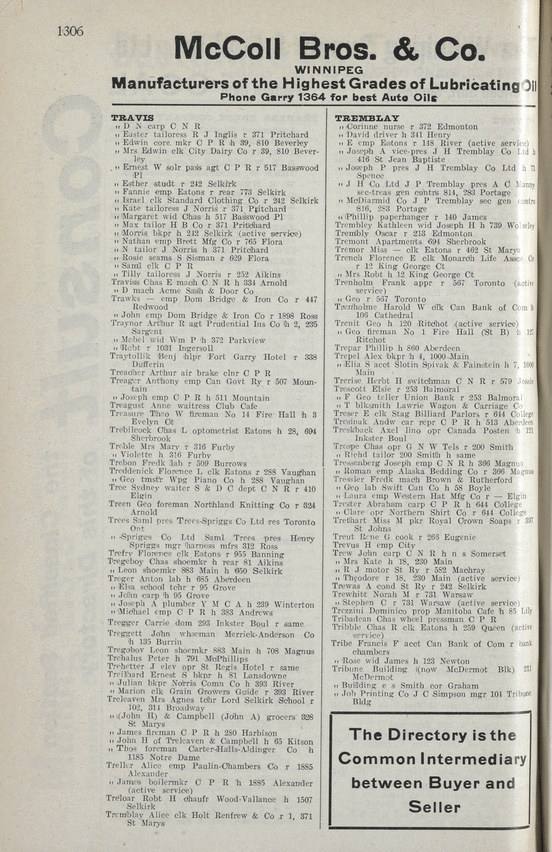 1306
McColl Bros. & Co.
WINNIPEG
Manufacturers of the Highest Grades of Lubricating Oil
Phone Garry 1364 for best Auto Oils
TRAVIS
„ D N carp C N R
„ Easter tailoress R J Inglis r 371 Pritchard
„ Edwin core mkr C P R h 39, 810 Beverley
„ Mrs Edwin clk City Dairy Co r 39, 810 Bever-
ley
„ Ernest W solr pass agt C P R r 517 Basswood
Pl
„ Esther studt r 242 Selkirk
„ Fannie emp Eatons r rear 773 Selkirk
„ Israel clk Standard Clothing Co r 242 Selkirk
„ Kate tailoress J Norris r 371 Pritchard
„ Margaret wid Chas h 517 Basswood Pl
„ Max tailor H B Co r 371 Pritchard
„ Morris bkpr h 242 Selkirk (active service)
„ Nathan emp Brett Mfg Co r 765 Flora
„ N tailor J Norris h 371 Pritchard
„ Rosie seams S Sisman r 629 Flora
„ Saml clk C P R
„ Tilly tailoress J Norris r 252 Aikins
Traviss Chas E mach C N R h 334 Arnold
„ D mach Acme Sash & Door Co
Trawks — emp Dom Bridge & Iron Co r 447
Redwood
„ John emp Dom Bridge & Iron Co r 1898 Ross
Traynor Arthur R agt Prudential Ins Co h 2, 235
Sargent
„ Mebel wid Wm P h 372 Parkview
„ Robt r 1031 Ingersoll
Traytollik Benj hlpr Fort Garry Hotel r 338
Dufferin
Treacher Arthur air brake clnr C P R
Treager Anthony emp Can Govt Ry r 507 Moun-
tain
„ Joseph emp C P R h 511 Mountain
Treagust Anne waitress Club Cafe
Treasure Theo W fireman No 14 Fire Hall h 3
Evelyn Ct
Trebilcock Chas L optometrist Eatons h 28, 694
Sherbrook
Treble Mrs Mary r 316 Furby
„ Violette h 316 Furby
Trebon Fredk lab r 509 Burrows
Treddenick Florence L clk Eatons r 288 Vaughan
„ Geo tmstr Wpg Piano Co h 288 Vaughan
Tree Sydney waiter S & D C dept C N R r 410
Elgin
Treen Geo foreman Northland Knitting Co r 324
Arnold
Trees Saml pres Trees-Spriggs Co Ltd res Toronto
Ont
„ -Spriggs Co Ltd Saml Trees pres Henry
Spriggs mgr harness mfrs 312 Ross
Trefry Florence clk Eatons r 955 Banning
Tregeboy Chas shoemkr h rear 81 Aikins
„ Leon shoemkr 883 Main h 650 Selkirk
Treger Anton lab h 685 Aberdeen
„ Elsa school tchr r 95 Grove
„ John carp h 95 Grove
„ Joseph A plumber Y M C A h 239 Winterton
„ Michael emp C P R h 383 Andrews
Tregger Carrie dom 293 Inkster Boul r same
Treggett John whseman Merrick-Anderson Co
h 135 Burrin
Tregobov Leon shoemkr 883 Main h 708 Magnus
Trehalus Peter h 791 McPhillips
Trehetter J elev opr St Regis Hotel r same
Treilhard Ernest S bkpr h 81 Lansdowne
„ Julian bkpr Norris Comn Co h 393 River
„ Marion clk Grain Growers Guide r 393 River
Treleaven Mrs Agnes tchr Lord Selkirk School r
102, 314 Broadway
„ (John H) & Campbell (John A) grocers 328
St Marys
„ James fireman C P R h 280 Harbison
„ John H of Treleaven & Campbell h 65 Kitson
„ Thos foreman Carter-Halls-Aldinger Co h
1185 Notre Dame
Treller Alice emp Paulin-Chambers Co r 1885
Alexander
„ James boilermkr C P R h 1885 Alexander
(active service)
Treloar Robt H chaufr Wood-Vallance h 1507
Selkirk
Tremblay Alice clk Holt Renfrew & Co r 1, 371
St Marys
TREMBLAY
„ Corinne nurse r 372 Edmonton
„ David driver h 341 Henry
„ E emp Eatons r 118 River (active service)
„ Joseph A vice-pres J H Tremblay Co Ltd h
416 St Jean Baptiste
„ Joseph P pres J H Tremblay Co Ltd h 71
Spence
„ J H Co Ltd J P Tremblay pres A C Manny
sec-treas gen contrs 814, 283 Portage
„ McDiarmid Co J P Tremblay sec gen contrs
816, 283 Portage
„ Phillip paperhanger r 140 James
Trembley Kathleen wid Joseph H h 739 Wolseley
Trembly Oscar r 213 Edmonton
Tremont Apartments 694 Sherbrook
Tremor Miss — clk Eatons r 462 St Marys
Trench Florence E clk Monarch Life Assce Co
r 12 King George Ct
„ Mrs Robt h 12 King George Ct
Trenholm Frank appr r 567 Toronto (active
service)
„ Geo r 567 Toronto
Trenholme Harold W clk Can Bank of Com h
106 Cathedral
Trenit Geo h 120 Ritchot (active service)
„ Geo fireman No 1 Fire Hall (St B) h 127
Ritchot
Trepar Phillip h 860 Aberdeen
Trepel Alex bkpr h 4, 1000 Main
„ Elia S acct Slotin Spivak & Fainstein h 7, 1000
Main
Trerise Herbt H switchman C N R r 579 Jessie
Trescott Elsie r 253 Balmoral
„ F Geo teller Union Bank r 253 Balmoral
„ T blksmith Lawrie Wagon & Carriage Co
Treser E clk Stag Billiard Parlors r 644 College
Tresinak Andw car repr C P R h 513 Aberdeen
Treskback Axel lino opr Canada Posten h 121
Inkster Boul
Trespe Chas opr G N W Tels r 200 Smith
„ Richd tailor 200 Smith h same
Tressenberg Joseph emp C N R h 366 Magnus
„ Roman emp Alaska Bedding Co r 366 Magnus
Tressler Fredk mach Brown & Rutherford
„ Geo lab Swift Can Co h 58 Boyle
„ Laura emp Western Hat Mfg Co r — Elgin
Trester Abraham carp C P R h 644 College
„ Clare opr Northern Shirt Co r 644 College
Trethart Miss M pkr Royal Crown Soaps r 397
St Johns
Treut Rene G cook r 266 Eugenie
Trevus H emp City
Trew John carp C N R h n s Somerset
„ Mrs Kate h 18, 230 Main
„ R J motor St Ry r 582 Machray
„ Theodore r 18, 230 Main (active service)
Trewas A cond St Ry r 242 Selkirk
Trewhitt Norah M r 731 Warsaw
„ Stephen C r 731 Warsaw (active service)
Trezzini Dominico prop Manitoba Cafe h 85 Lily
Tribadean Chas wheel pressman C P R
Tribble Chas R clk Eatons h 259 Queen (active
service)
Tribe Francis F acct Can Bank of Com r bank
chambers
„ Rose wid James h 123 Newton
Tribune Building (now McDermot Blk) 211
McDermot
„ Building e s Smith cor Graham
„ Job Printing Co J C Simpson mgr 104 Tribune
Bldg
The Directory is the
Common Intermediary
between Buyer and
Seller